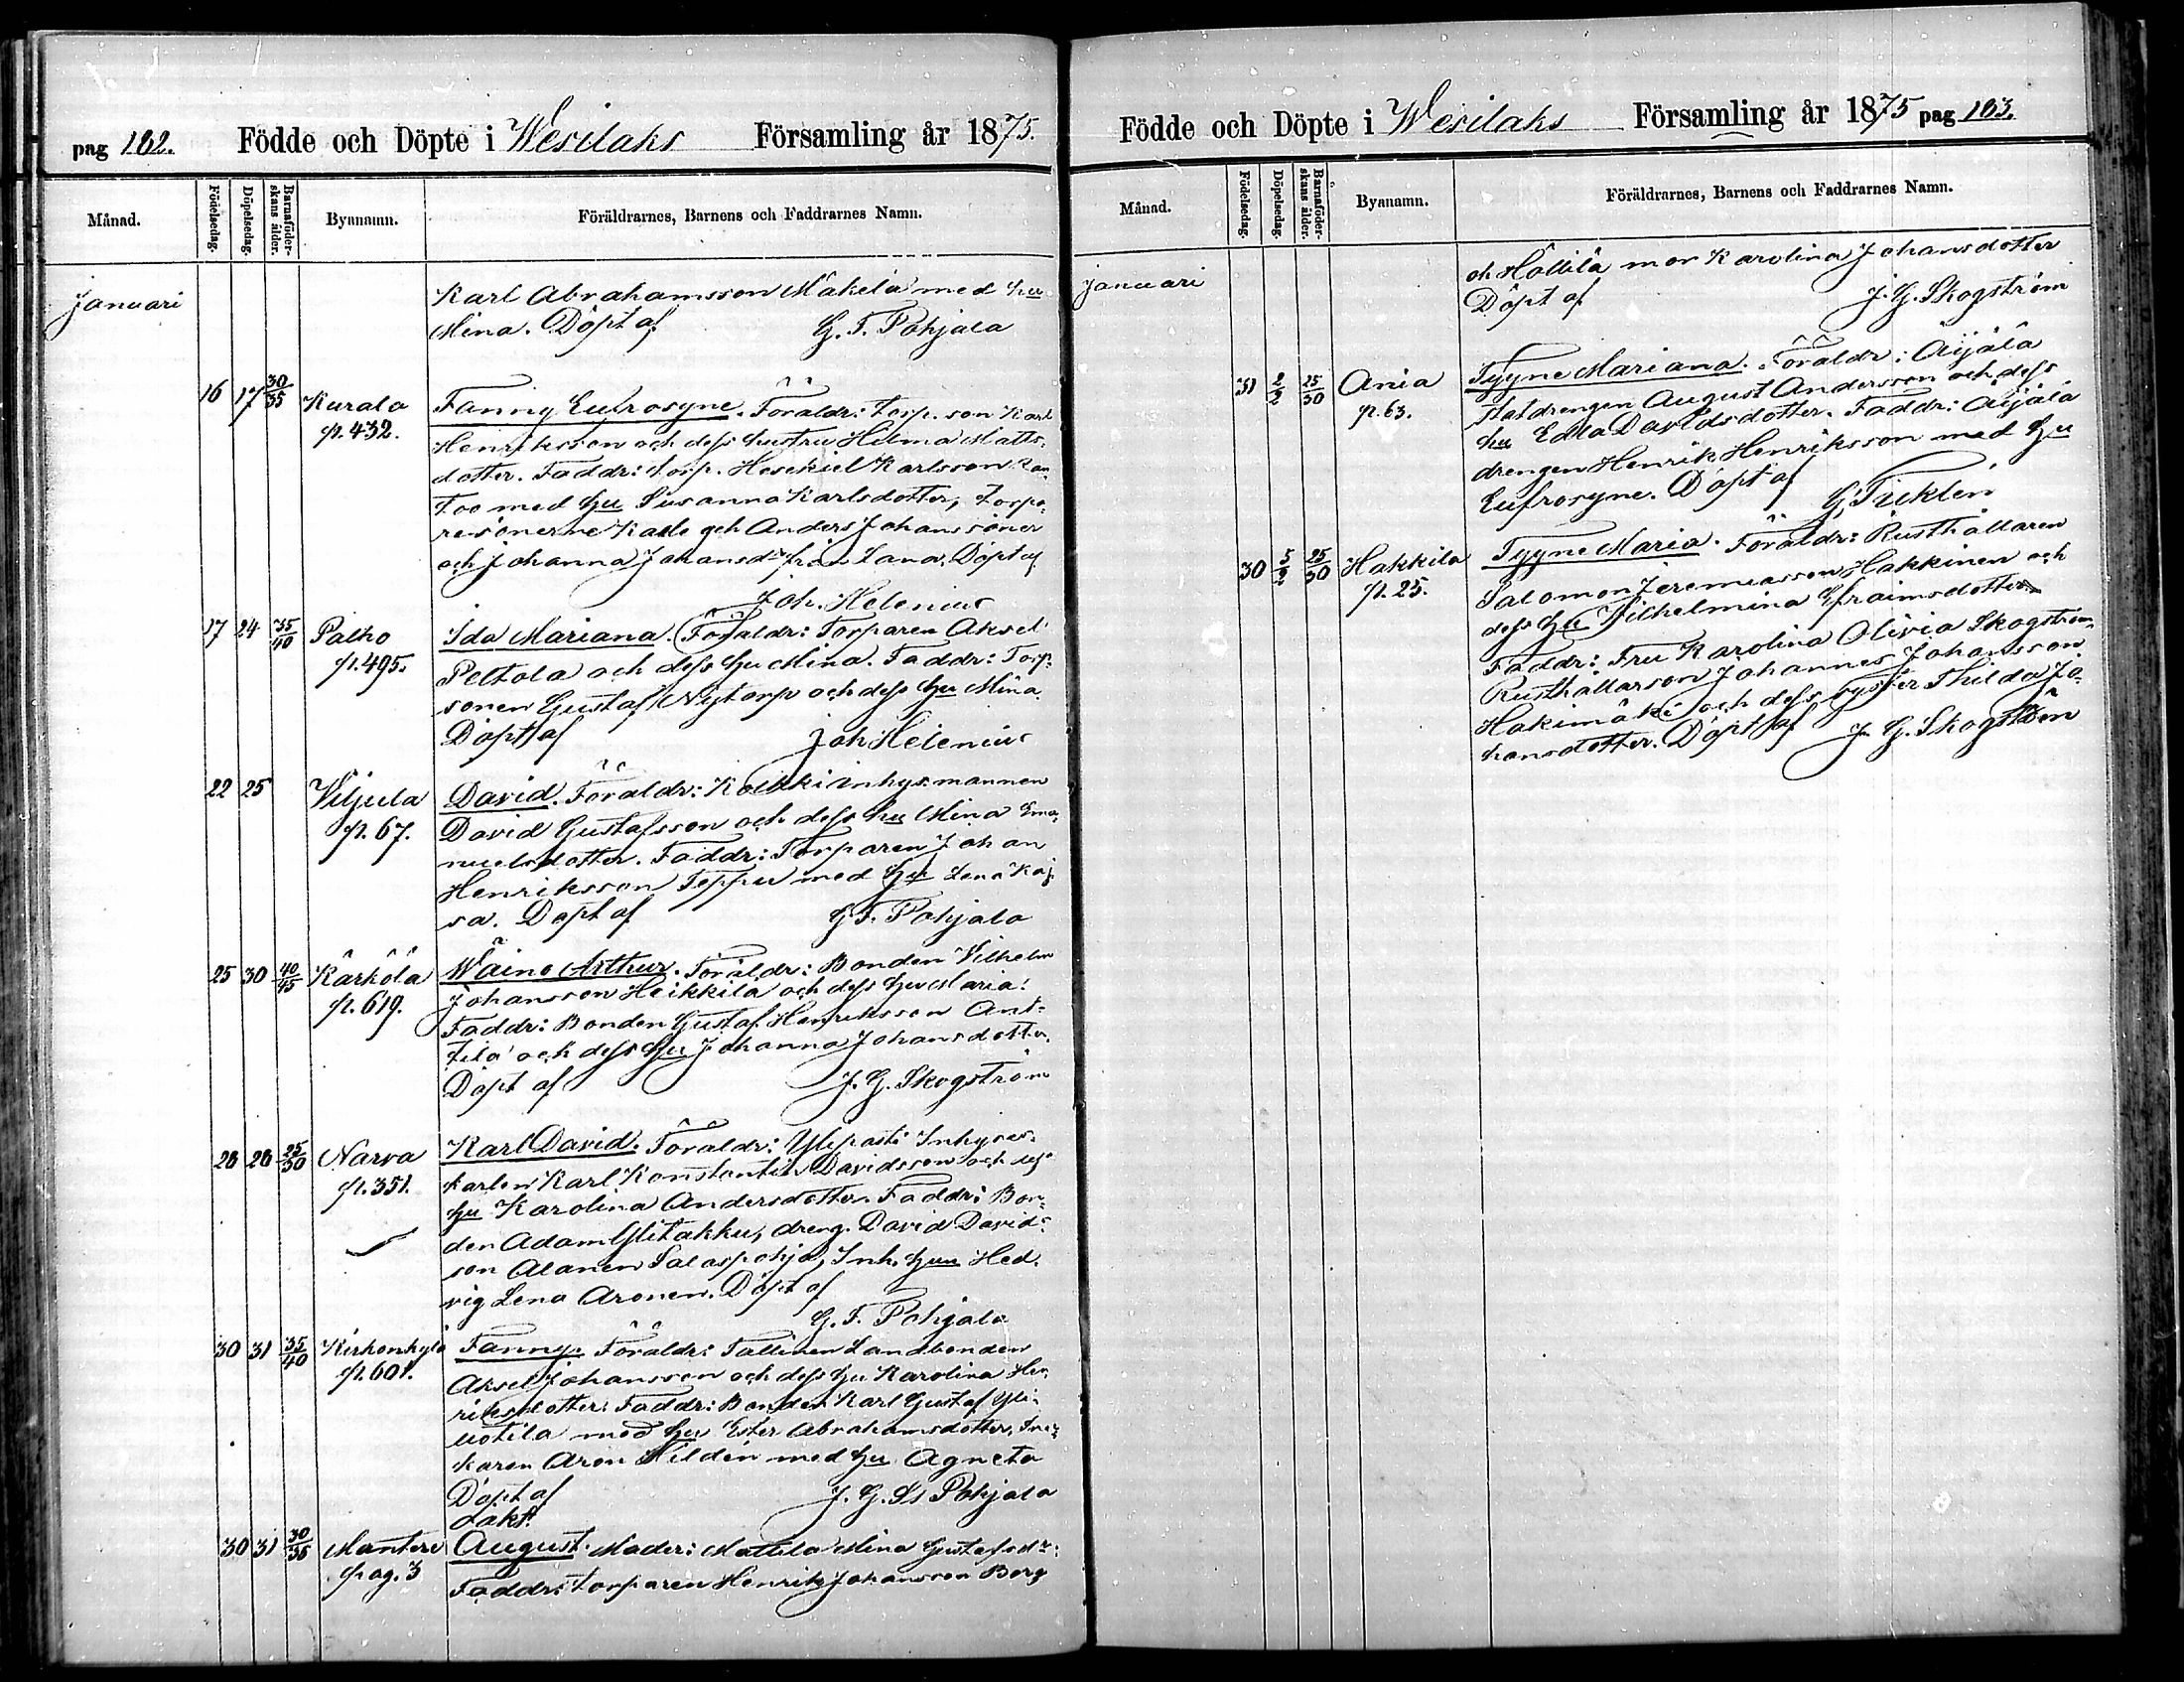 pag 162. Födde och Döpte i Wesilaks Församling år 1875.
Månad. Födelsedag. Döpelsedag. Barnaföderskans ålder. Bynamn. Föräldrarnes, Barnens och Faddrarnes Namn.
Januari Karl Abrahamsson Mäkelä med hu
Mina. Döpt af G. F. Pohjala
16 17 30/35 Kurala Fanny Eufrosyne. Föräldr: torp. son Karl
p. 432. Henriksson och dess hustru Hilma Matts-
dotter. Faddr: torp. Hesekiel Karlsson
too med hu Susanna Karlsdotter, torpa-
resönerne Kalle och Anders Johanssöner
och Johanna Johansdr från Lana. Döpt af
Joh. Helenius
17 24 35/40 Palho Ida Mariana. Föräldr: Torparen Aksel
p. 495. Peltola och dess hu Mina. Faddr: Torp-
sonen Gustaf Nytorp och dess hu Mina.
Döpt af Joh Helenius
22 25 Viljula David. Föräldr: Kolkki inhysmannen
p. 67. David Gustafsson och dess hu Mina Ema-
nuelsdotter. Faddr: Torparen Johan
Henriksson Teppu med hu Lena Kaj-
sa. Döpt af G F. Pohjala
25 30 40/45 Kärkölä Wäinö Arthur. Föräldr: Bonden Vilhelm
p. 619. Johansson Heikkilä och dess hu Maria.
Faddr: Bonden Gustaf Henriksson Ant-
tila och dess hu Johanna Johansdotter.
Döpt af J. G. Skogström
26 28 25/30 Narva Karl David. Föräldr: Ylipasti Inhyses-
p. 351. karlen Karl Konstantin Davidsson och dess
hu Karolina Andersdotter. Faddr: Bon-
den Adam Ylitakku, dreng. David Davids-
son Alanen Salaspohja, Inh. hun Hed-
vig Lena Aronen. Döpt af
G. F. Pohjala
30 31 35/40 Kirkonkylä Fanny. Föräldr: Tallinen Landbonden
p. 601. Aksel Johansson och dess hu Karolina Hen-
riksdotter. Faddr: Bonden Karl Gustaf Yli-
uotila med hu Ester Abrahamsdotter,
karen Aron Hilden med hu Agneta
Döpt af J. G. Pohjala
oäkt.
30 31 30/35 Mantere August. Moder: Mattila Mina Gustafsdr.
pag. 3 Faddr: torparen Henrik Johansson Borg
Födde och Döpte i Wesilaks Församling år 1875 pag 163.
Månad. Födelsedag. Döpelsedag. Barnaföderskans ålder. Bynamn. Föräldrarnes, Barnens och Faddrarnes Namn.
Januari och Hollilä mor Karolina Johansdotter
Döpt af J. G. Skogström
31 2/2 25/30 Ania Tyyne Mariana. Föräldr: Äijälä
p. 63. statdrengen August Andersson och dess
hu Edla Davidsdotter. Faddr: Äijälä
drengen Henrik Henriksson med hu
Eufrosyne. Döpt af G.
30 5/2 25/30 Hakkila Tyyne Maria. Föräldr: Rusthållaren
p. 25. Salomon Jeremiasson Hakkinen och
dess hu Vilhelmina Efraimsdotter
Faddr: Fru Karolina Olivia Skogström,
Rusthållarson Johannes Johansson
Hakimäki och dess syster Thilda Jo-
hansdotter. Döpt af J. G. Skogström